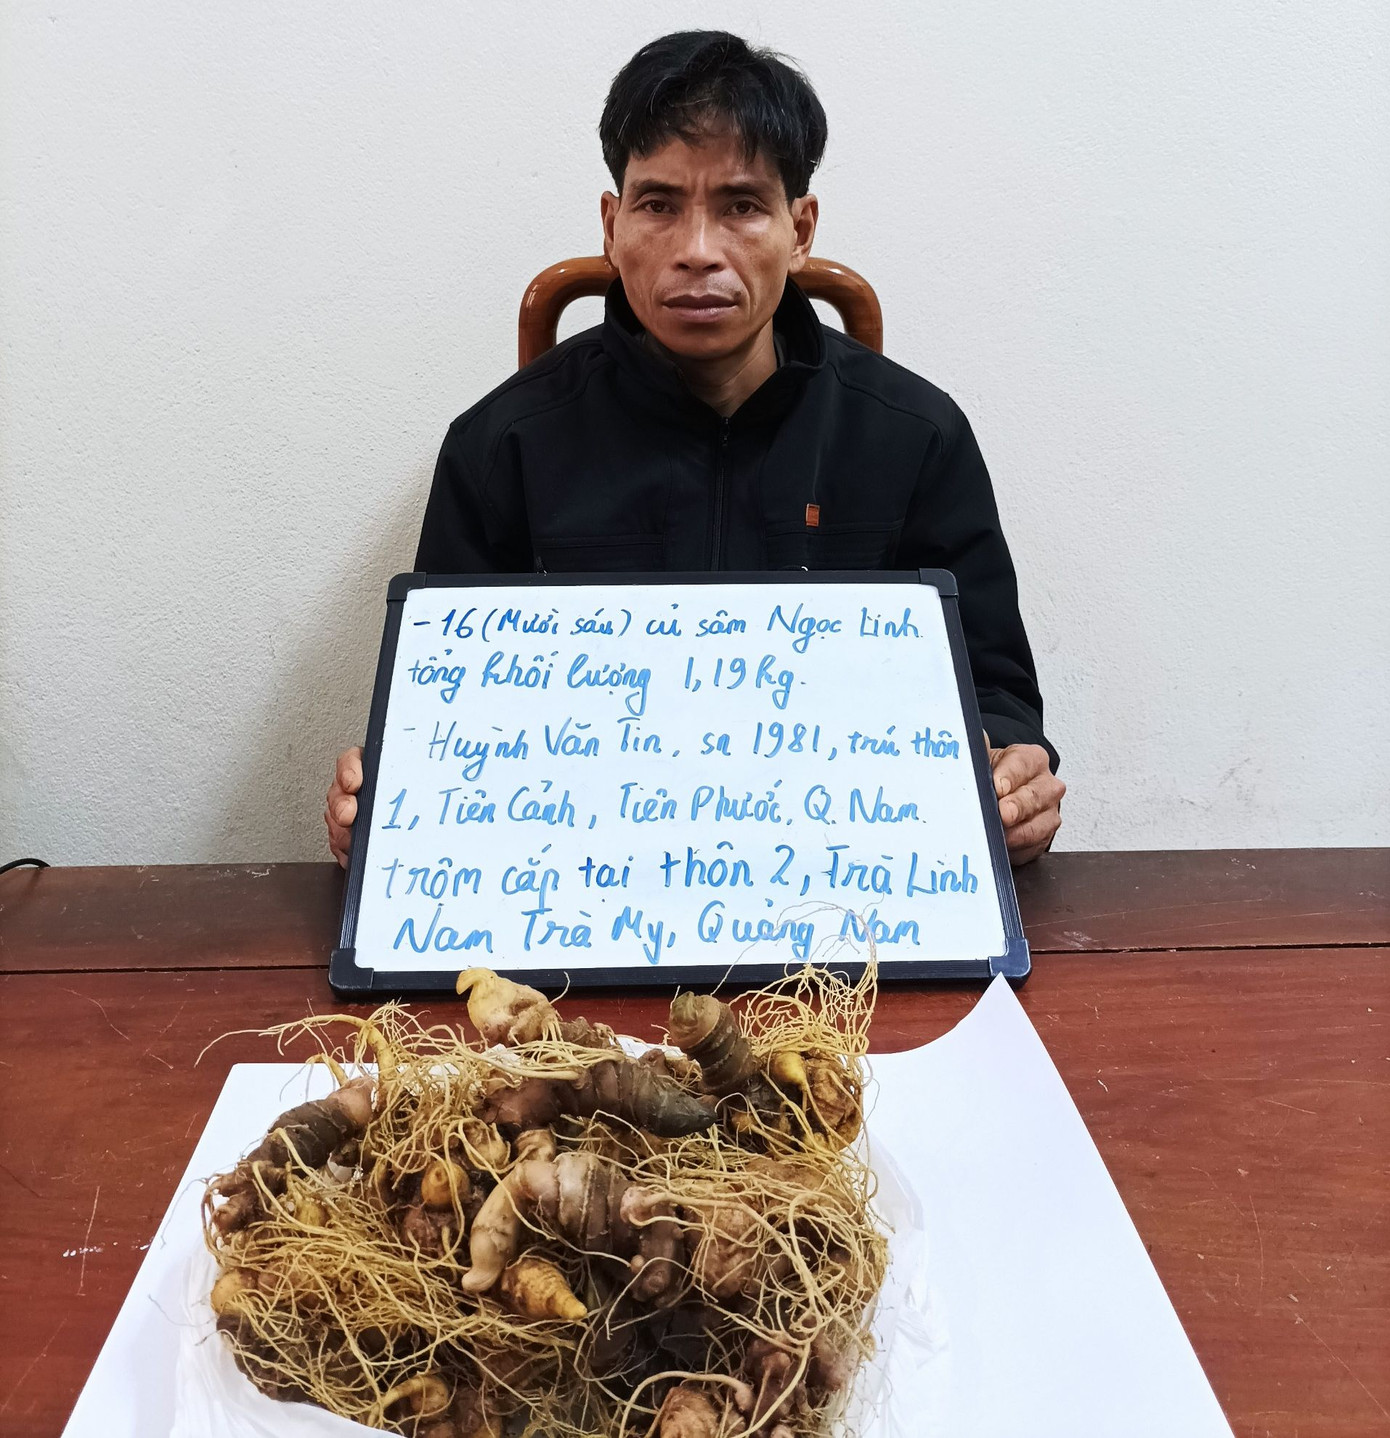 - 16 (Mười sáu) củ sâm Ngọc Linh.
tổng khối lượng 1,19 kg.
- Huỳnh Văn Tin, sn 1981, trú thôn
1, Tiên Cảnh, Tiên Phước, Q. Nam.
trộm cắp tại thôn 2, Trà Linh
Nam Trà My, Quảng Nam